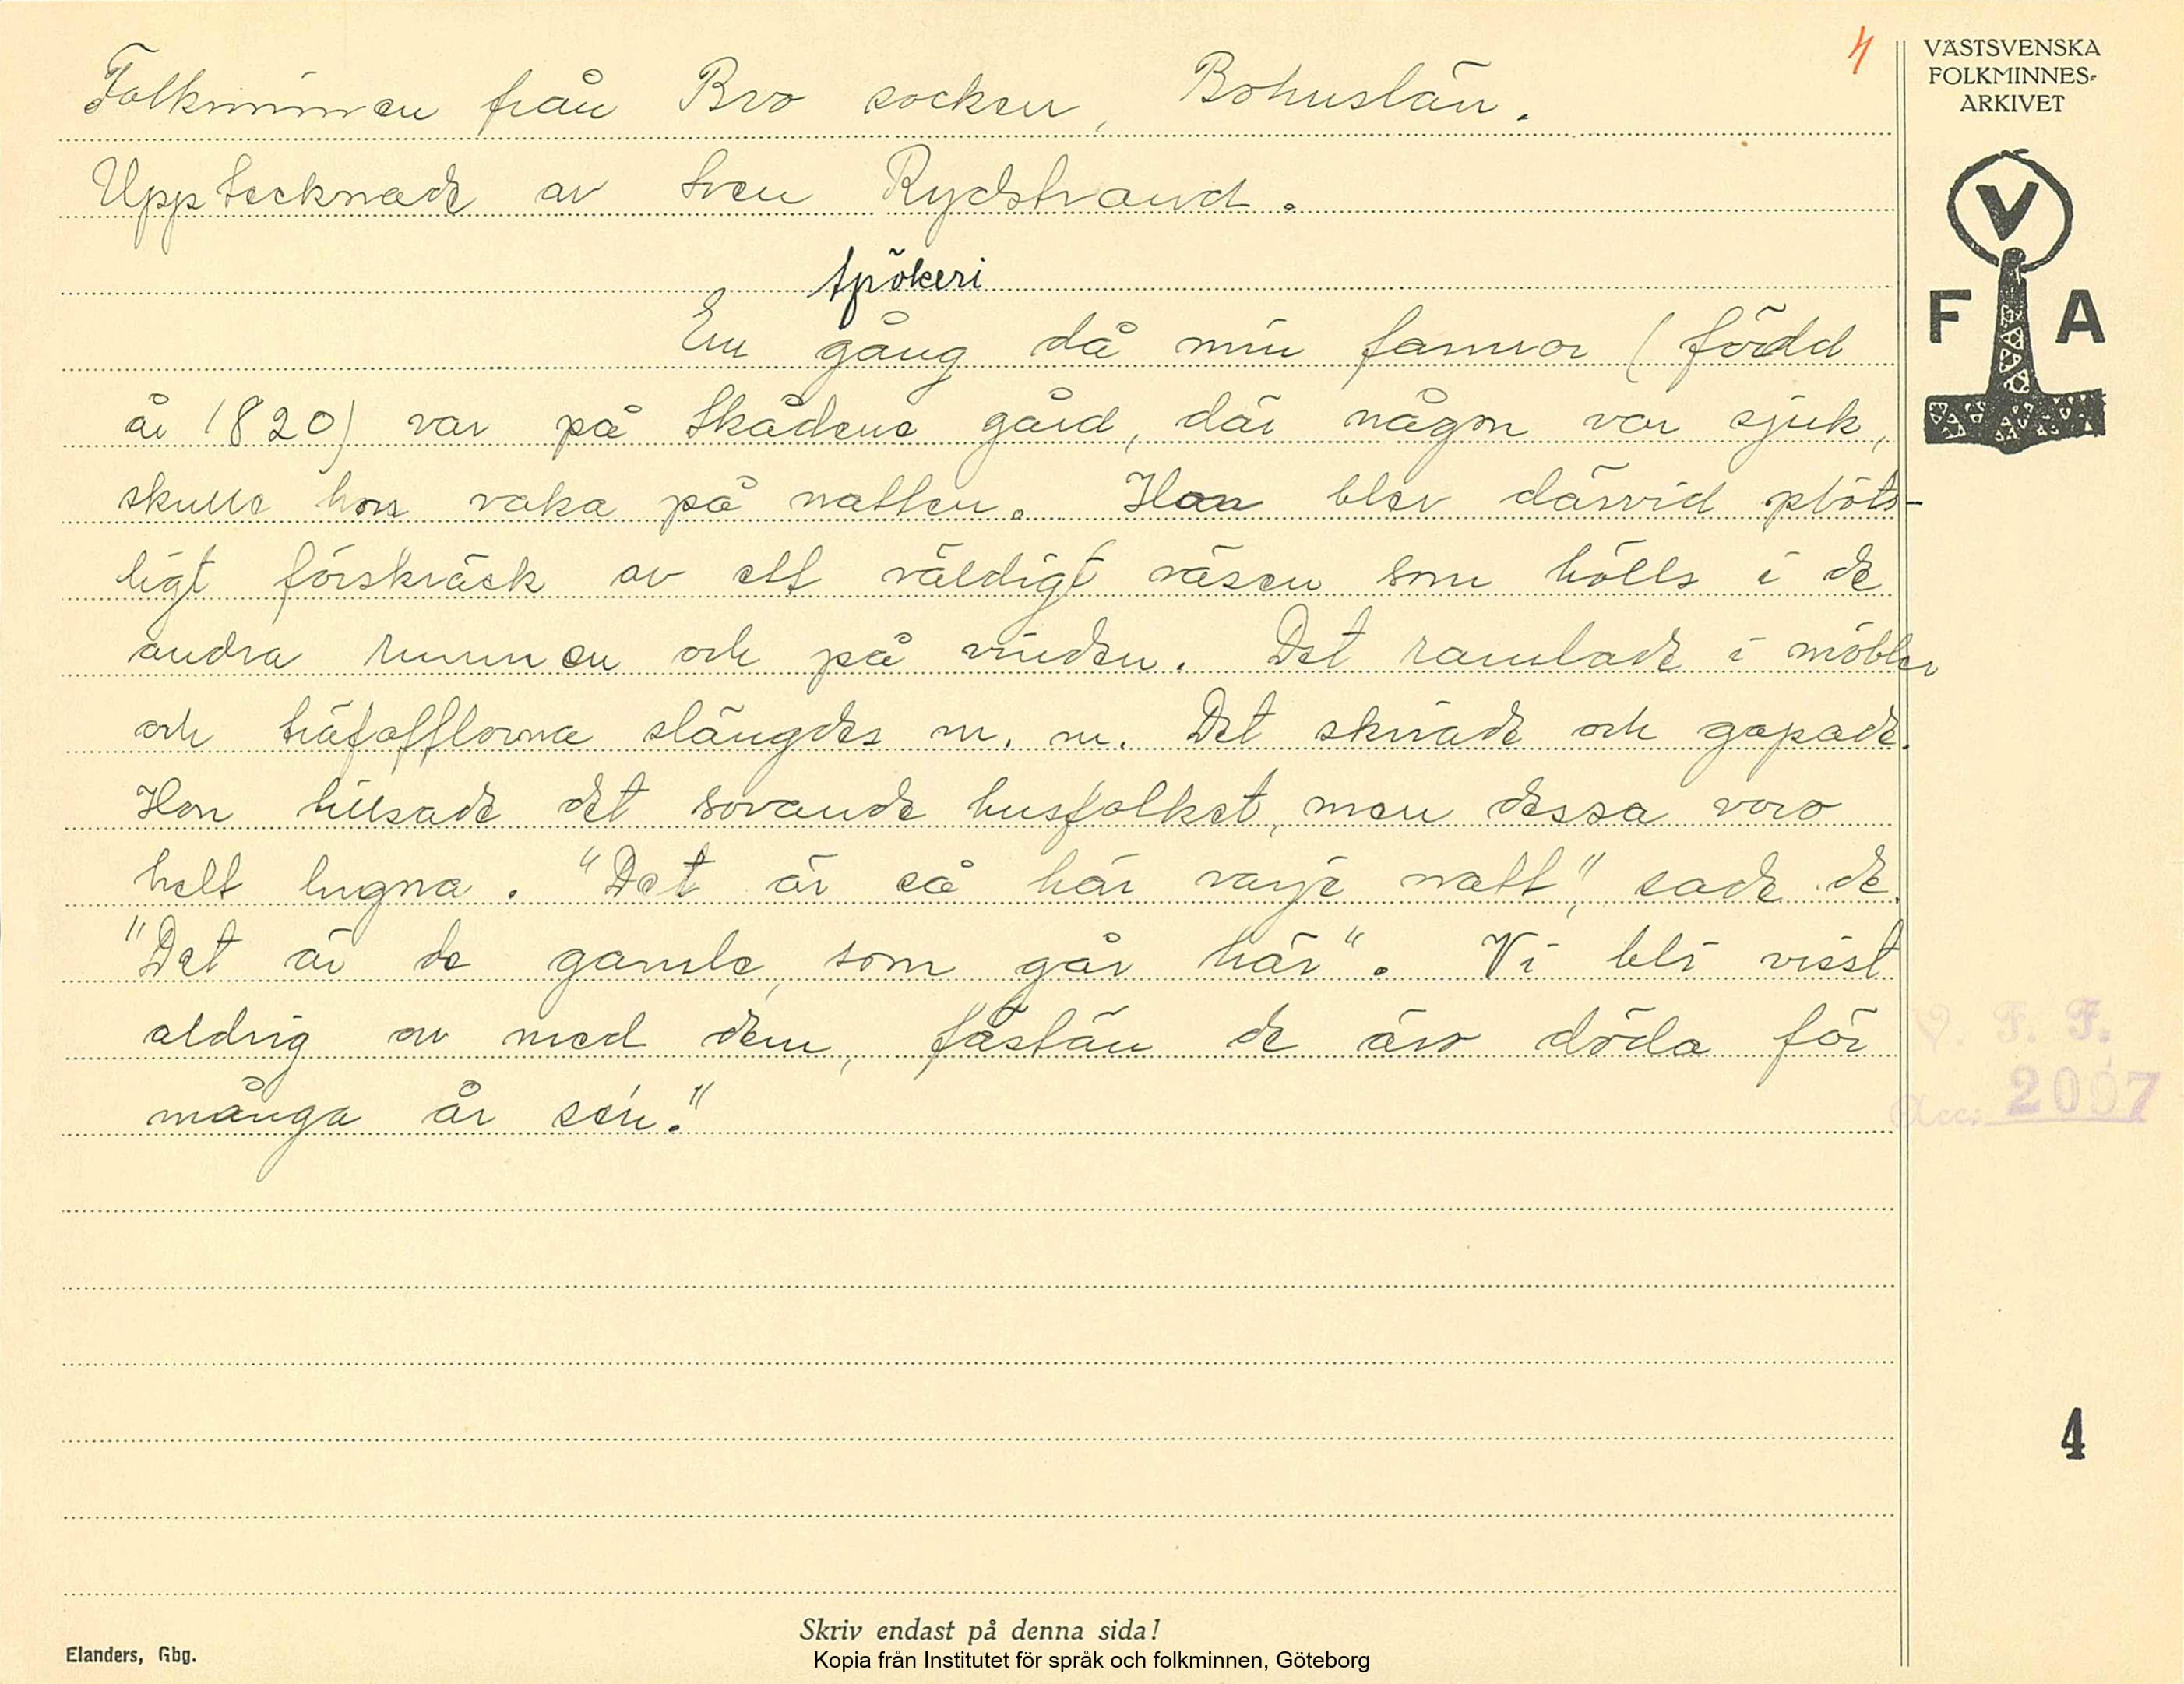 4
VÄSTSVENSKA
FOLKMINNES-
ARKIVET
V
F A
Folkminnen från Bro socken, Bohuslän.
Upptecknade av Sven Rydstrand.
Spökeri
En gång då min farmor (född
år 1820) var på Skådene gård, där någon var sjuk,
skulle hon vaka på natten. Hon blev därvid plöts-
ligt förskräck av ett väldigt väsen som hölls i de
andra rummen och på vinden. Det ramlade i möbler
och trätofflorna slängdes m. m. Det skriade och gapade.
Hon hilsade det sovande husfolket, men dessa voro
helt lugna. "Det är så här varje natt", sade de.
"Det är de gamle, som går här". Vi bli visst
aldrig av med dem, fastän de äro döda för
många år sen."
V. F. F.
Acc: 2097
4
Skriv endast på denna sida!
Elanders, Gbg.
Kopia från Institutet för språk och folkminnen, Göteborg